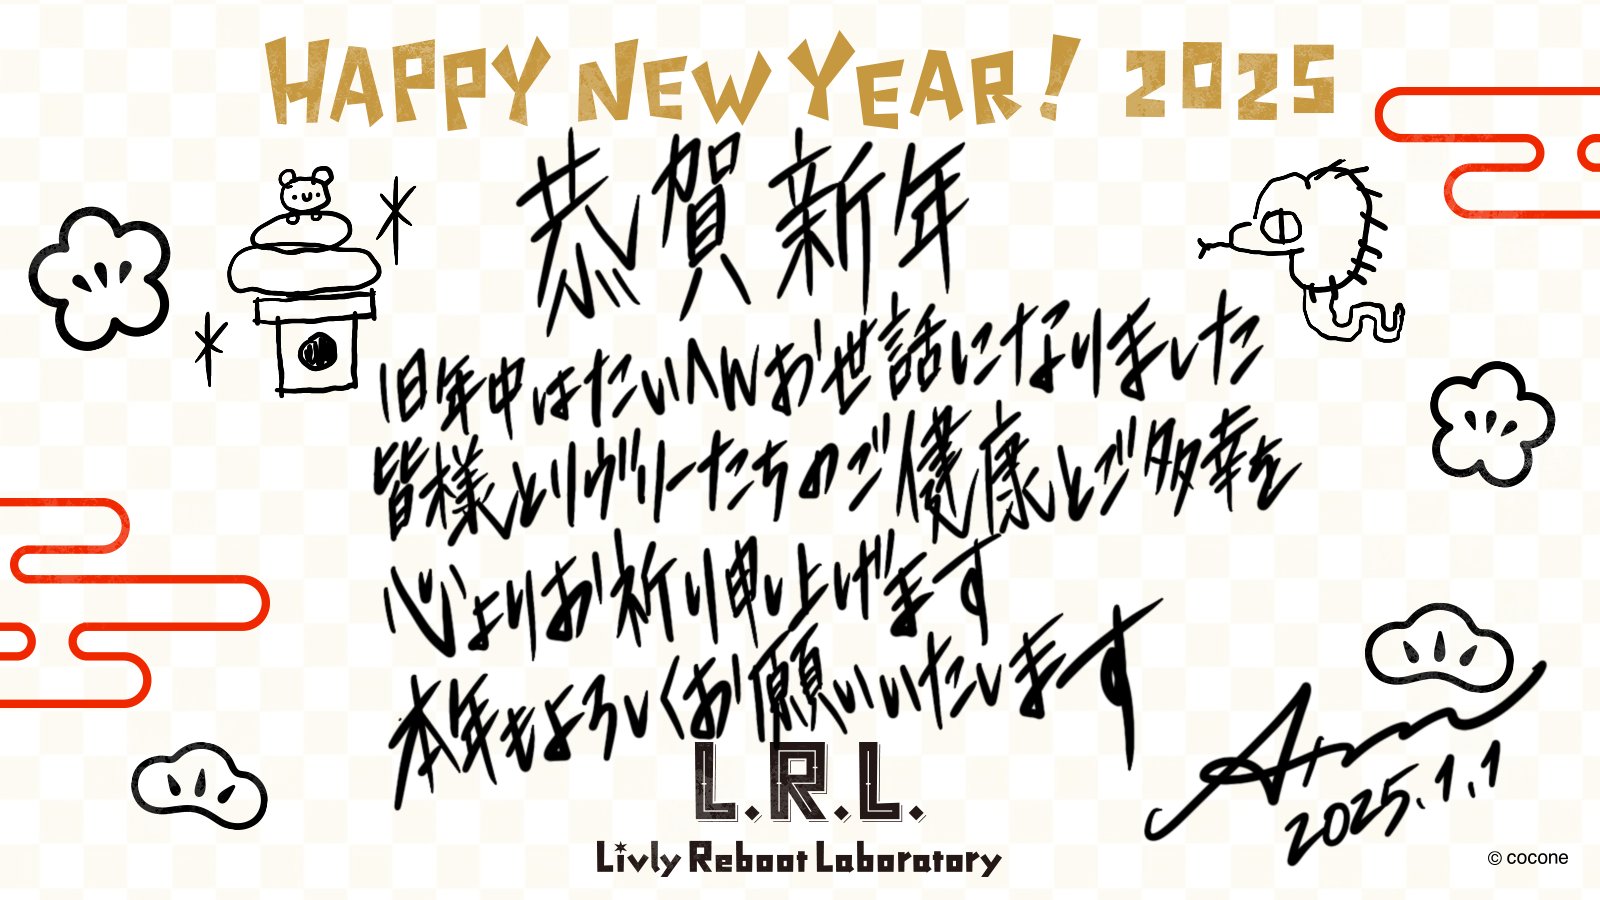 HAPPY NEW YEAR! 2025
恭賀新年
旧年中はたいへんお世話になりました
皆様とリヴリーたちのご健康とご多幸を
心よりお祈り申し上げます
本年もよろしくお願いいたします
L.R.L.
Livly Reboot Laboratory
2025.1.1
© cocone